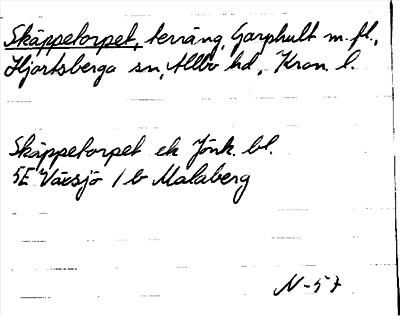 Skäppetorpet, terräng, Garphult m.fl.,
Hjortsberga sn, Allbo hd, Kron. l.
Skäppetorpet ek Jönk. bl.
5E Växsjö 1 b Malaberg
N-57